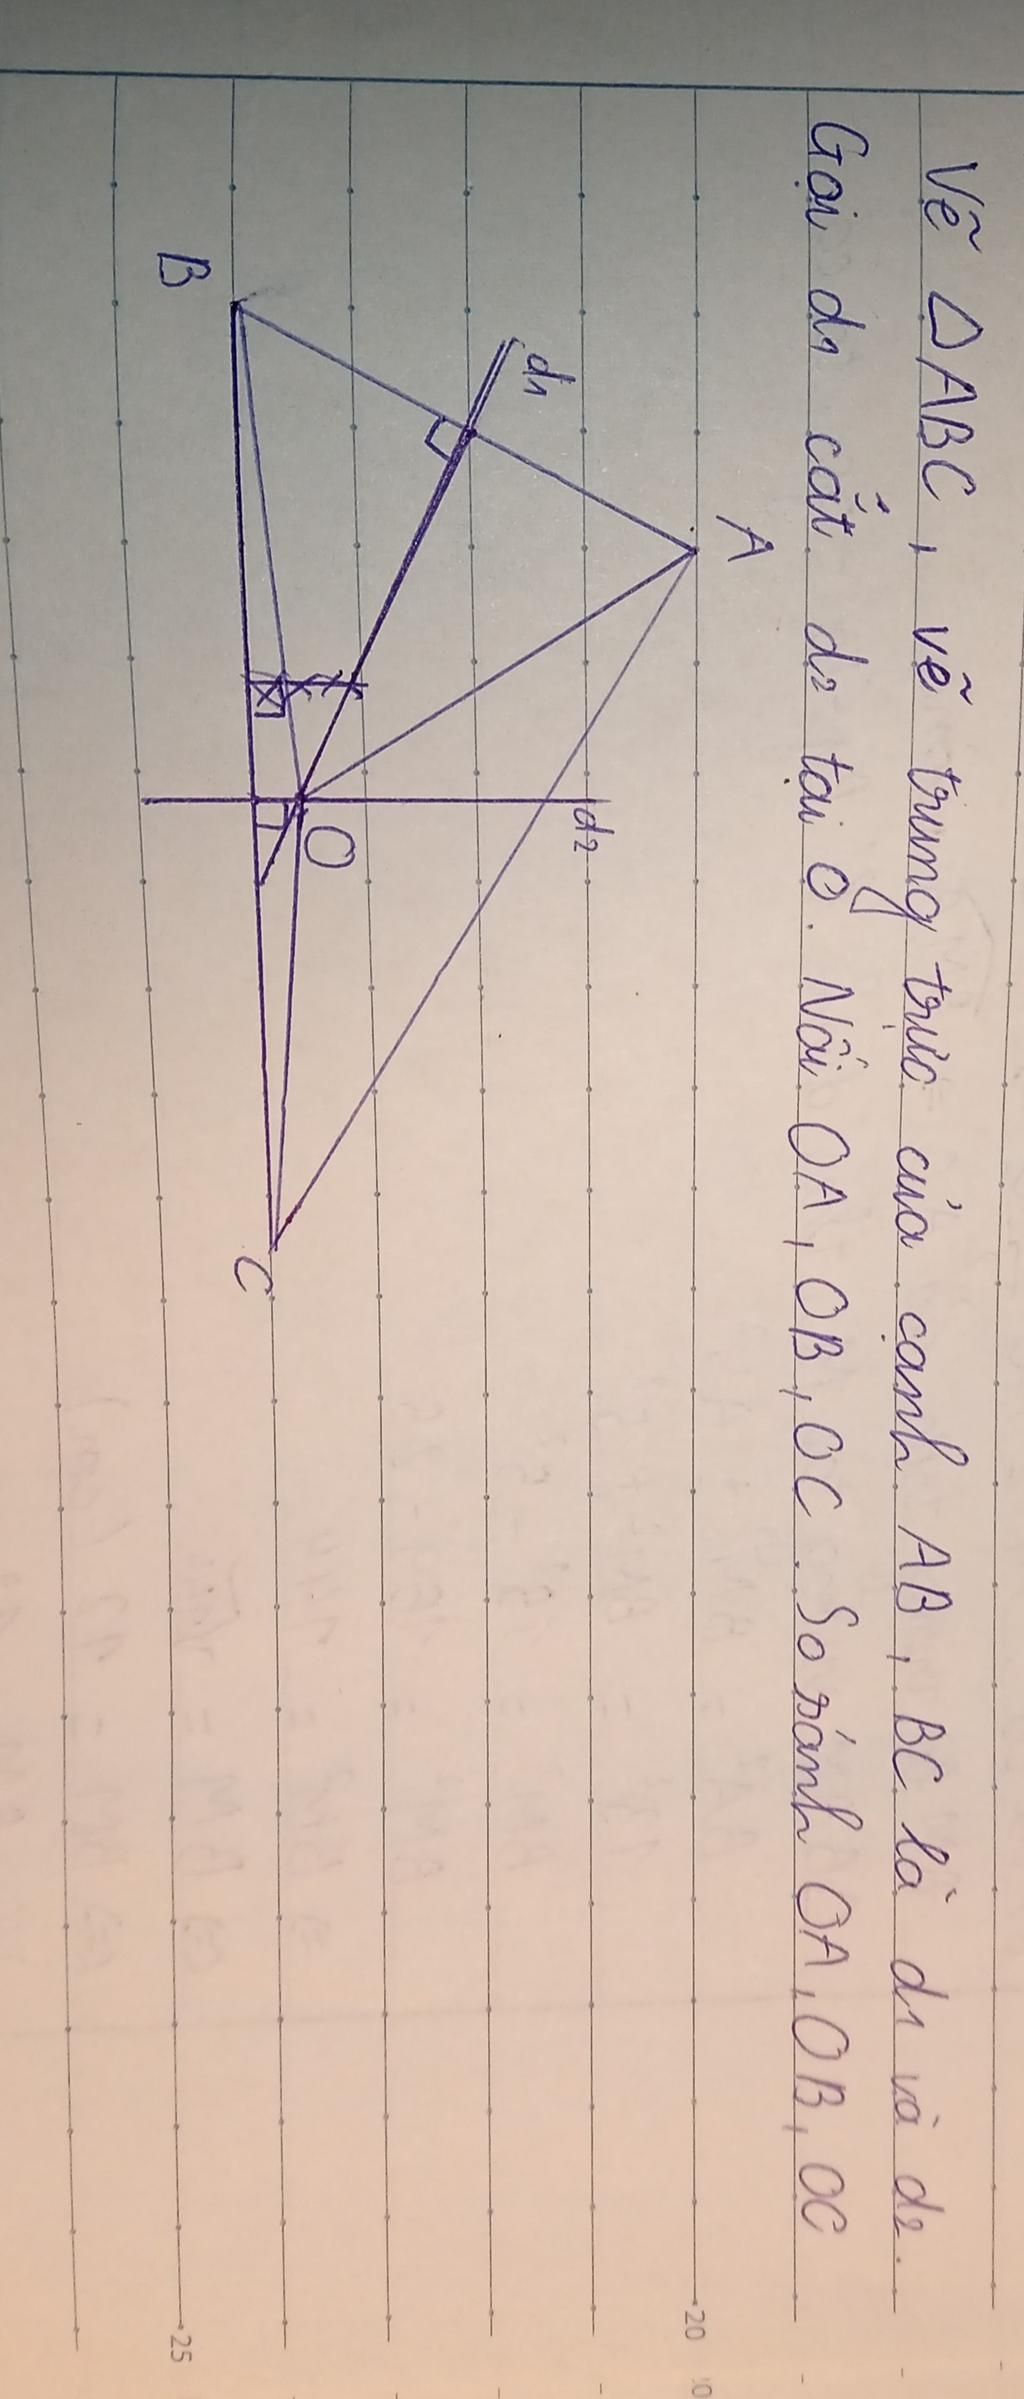 Vẽ △ABC, vẽ trung trực của cạnh AB, BC là d1 và d2.
Gọi d1 cắt d2 tại O. Nối OA, OB, OC. So sánh OA, OB, OC
A
d1
d2
O
B
C
20
25